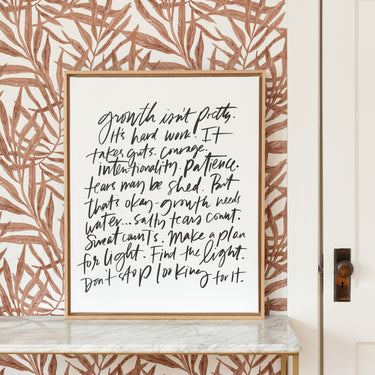 growth isn't pretty.
It's hard work. It
takes guts. courage.
intentionality. patience.
tears may be shed. But
that's okay-growth needs
water... salty tears count.
Sweat counts. Make a plan
for light. Find the light.
Don't stop looking for it.